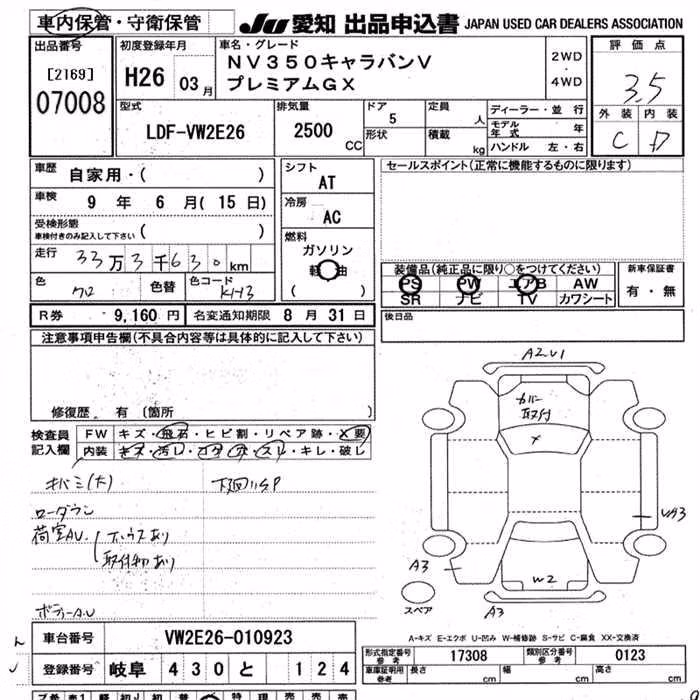 車内保管・守衛保管
JU 愛知 出品申込書 JAPAN USED CAR DEALERS ASSOCIATION
出品番号
[2169]
07008
初度登録年月
H26 03月
車名・グレード
NV350キャラバンV
プレミアムGX
2WD
・
4WD
評価点
3.5
外装 内装
C D
型式
LDF-VW2E26
排気量
2500 CC
ドア
5
形状
定員
人
積載
kg
ディーラー・並行
モデル年式 年
ハンドル 左・右
車歴 自家用・( )
車検 9年 6月(15日)
受検形態
車検付きのみ記入して下さい ( )
走行 33万3千630km
色 クロ 色替 色コード KH3
シフト
AT
冷房
AC
燃料
ガソリン
軽油
( )
セールスポイント(正常に機能するものに限ります)
装備品(純正品に限り○をつけてください)
PS PW エアB AW
SR ナビ TV カワシート
新車保証書
有・無
R券 9,160円 名変通知期限 8月31日
後日品
注意事項申告欄(不具合内容等は具体的に記入して下さい)
修復歴 有(箇所 )
検査員
記入欄
FW キズ・飛石・ヒビ割・リペア跡・X要
内装 キズ・汚レ・コゲ・穴・スレ・キレ・破レ
キバミ(大) 下回りSP
ローダウン
荷室AU.
ボディーA.U
A2U1
カバー
取付
X
A3
W2
A3
スペア
A-キズ E-エクボ U-凹み W-補修跡 S-サビ C-腐食 XX-交換済
車台番号 VW2E26-010923
登録番号 岐阜 430 と 124
形式指定番号 参考 17308 類別区分番号 参考 0123
車庫証明用 参考 長さ cm 幅 cm 高さ cm